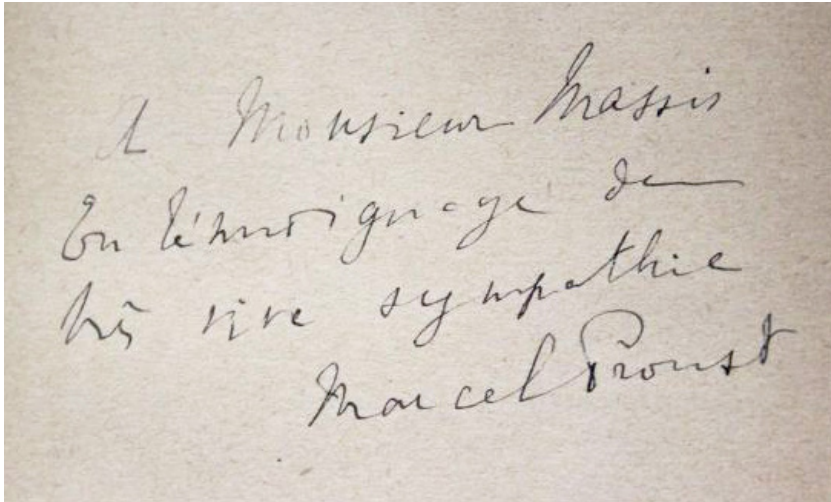 A Monsieur Massis
En témoignage de
très vive sympathie
Marcel Proust